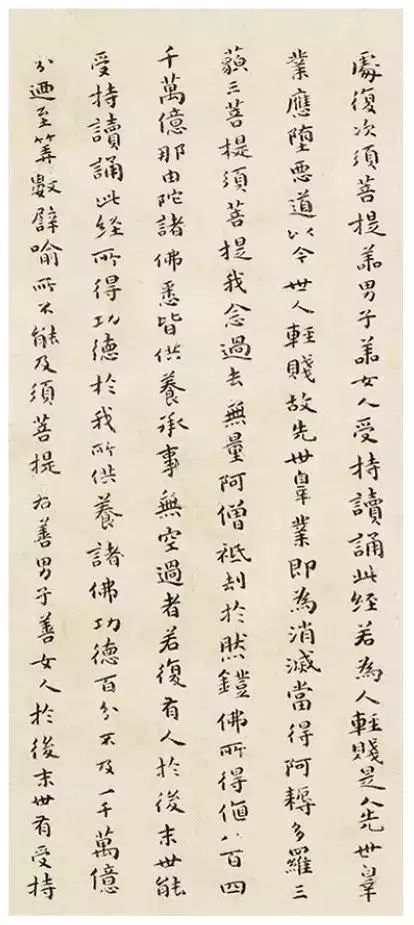 處復次須菩提善男子善女人受持讀誦此経若為人輕賤是人先世辠
業應墮惡道以今世人輕賤故先世辠業即為消滅當得阿耨多羅三
藐三菩提須菩提我念過去無量阿僧祇刦於然鐙佛所得値八百四
千萬億那由陀諸佛悉皆供養承事無空過者若復有人於後末世能
受持讀誦此经所得功德於我所供養諸佛功德百分不及一千萬億
分廼至筭數譬喻所不能及須菩提若善男子善女人於後末世有受持